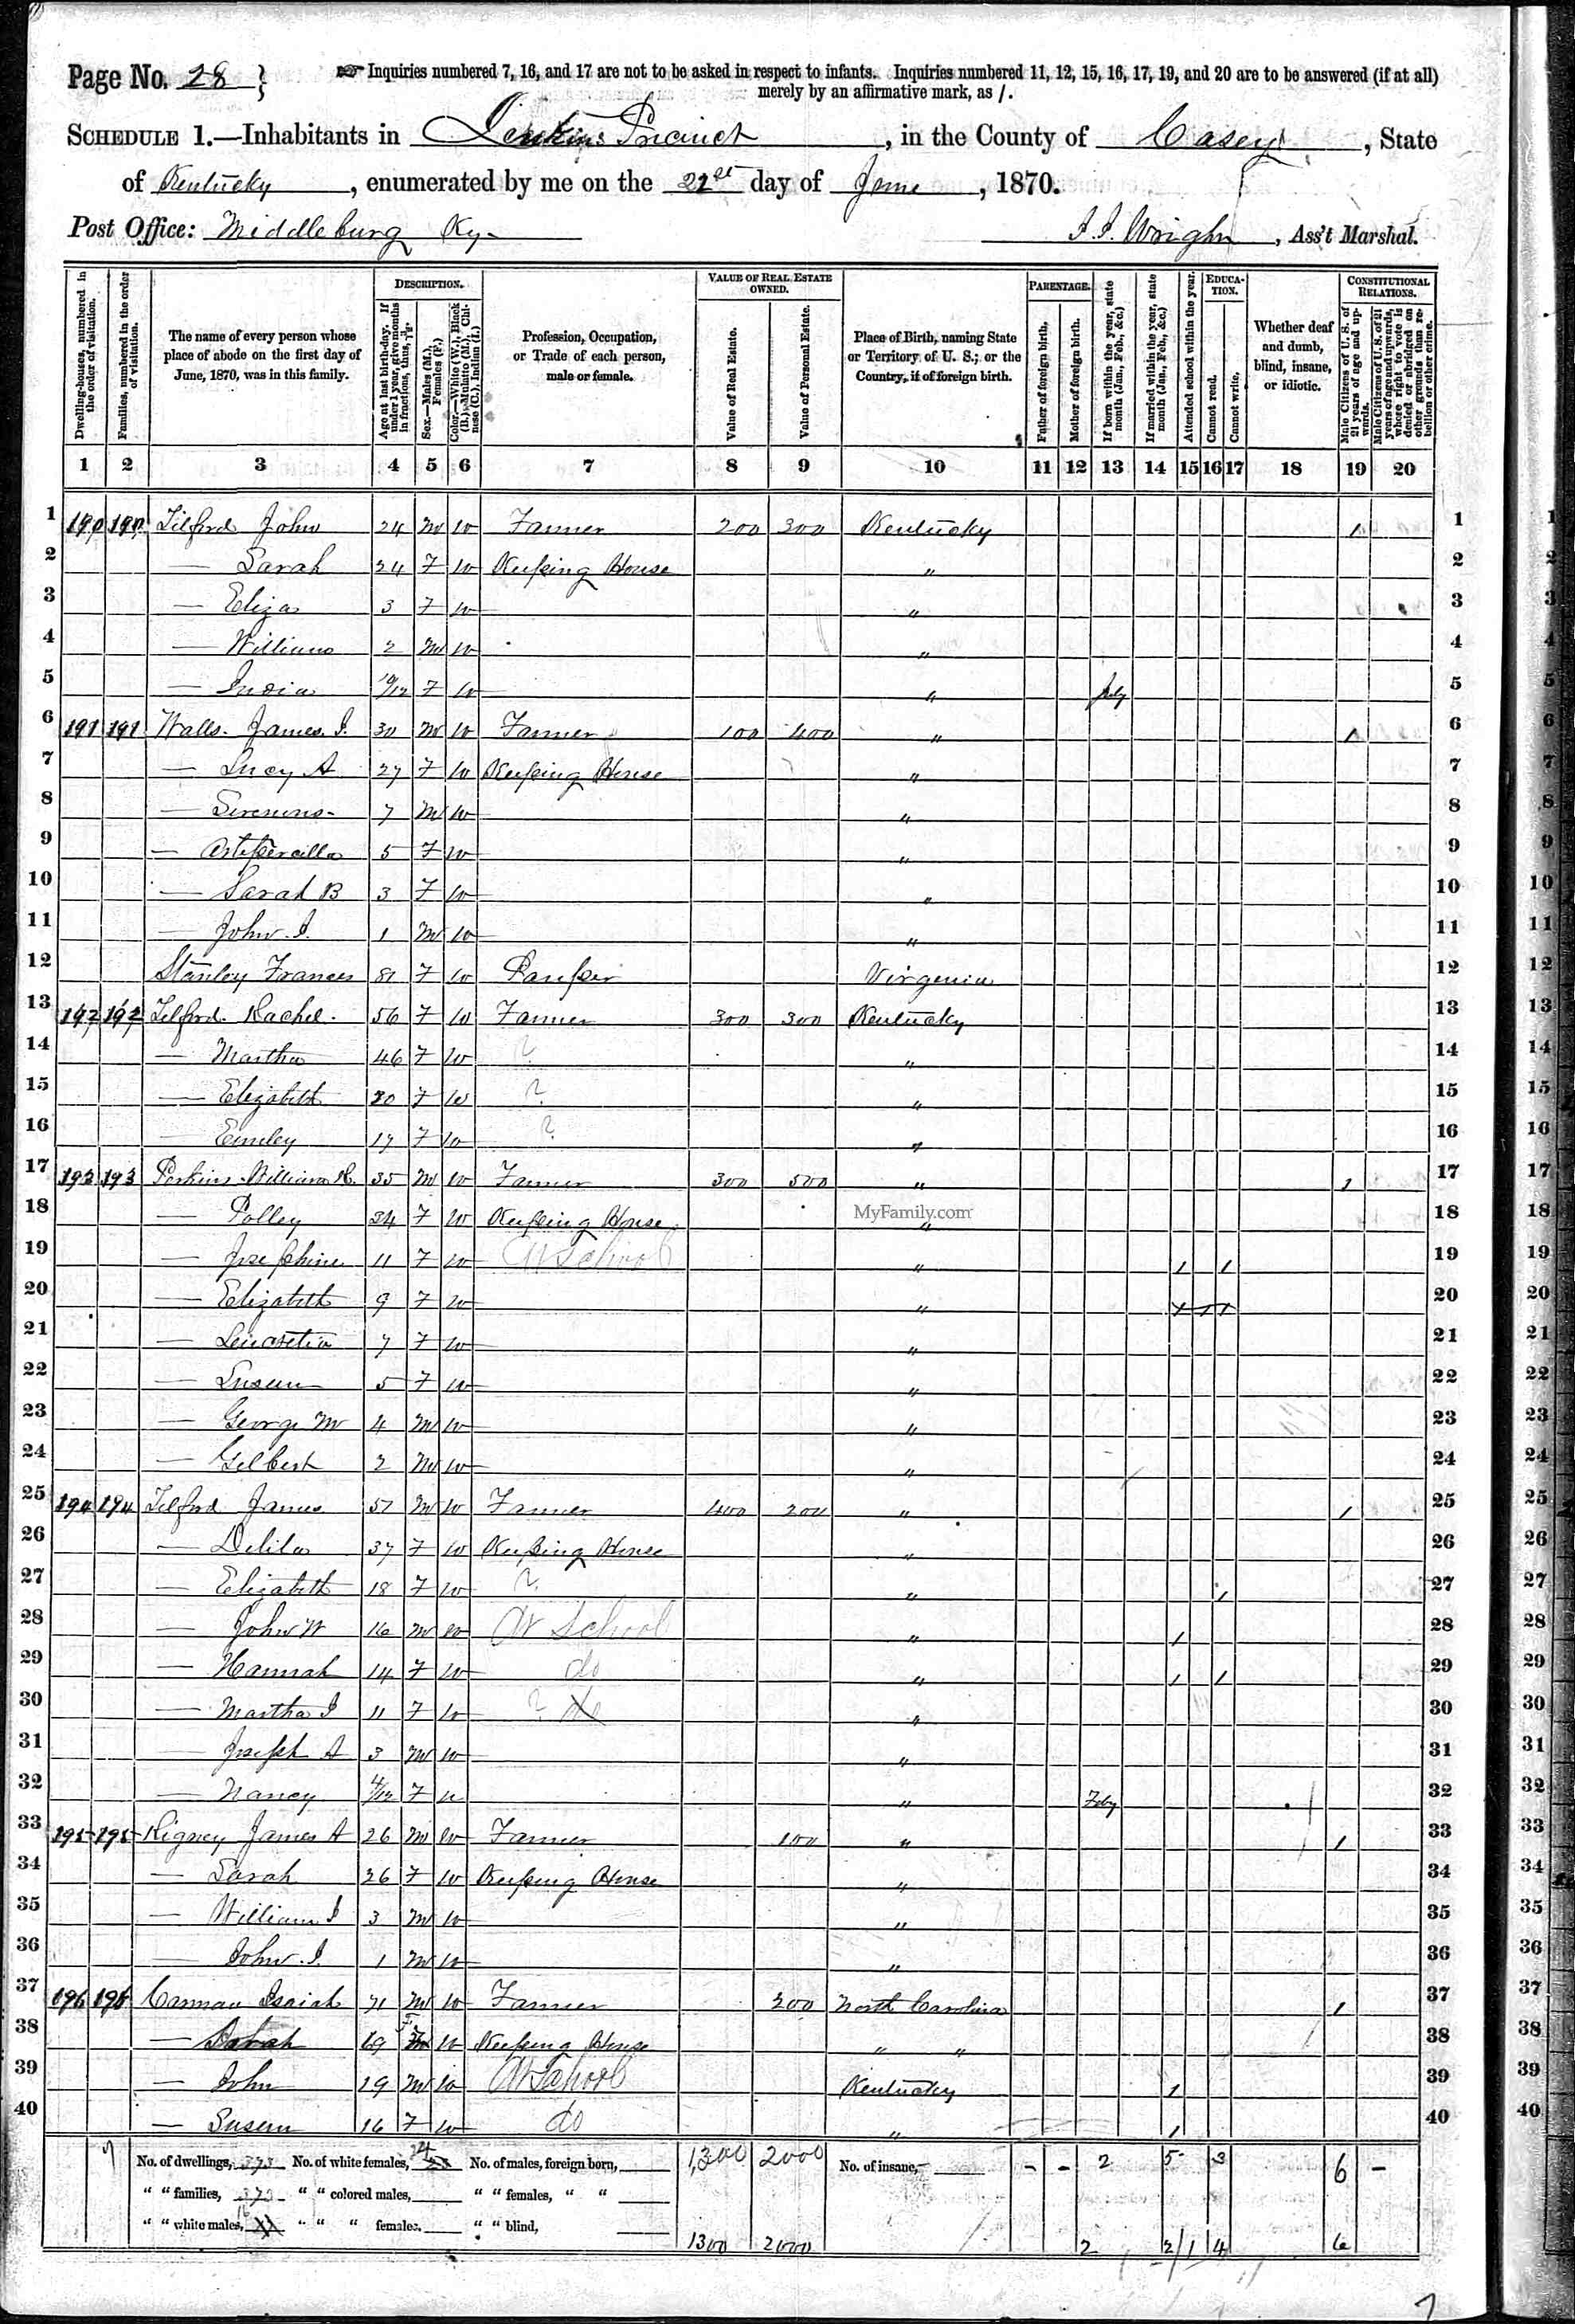 Page No. 28
Inquiries numbered 7, 16, and 17 are not to be asked in respect to infants. Inquiries numbered 11, 12, 15, 16, 17, 19, and 20 are to be answered (if at all)
merely by an affirmative mark, as /.
SCHEDULE 1.—Inhabitants in Jenkins Precinct, in the County of Casey, State
of Kentucky, enumerated by me on the 22nd day of June, 1870.
Post Office: Middleburg Ky. J. J. Wright, Ass't Marshal.
Dwelling-houses, numbered in the order of visitation.
Families, numbered in the order of visitation.
The name of every person whose place of abode on the first day of June, 1870, was in this family.
DESCRIPTION.
Age at last birth-day. If under 1 year, give months in fractions, thus, 3/12.
Sex.—Males (M.), Females (F.)
Color.—White (W.), Black (B.), Mulatto (M.), Chinese (C.), Indian (I.)
Profession, Occupation, or Trade of each person, male or female.
VALUE OF REAL ESTATE OWNED.
Value of Real Estate.
Value of Personal Estate.
Place of Birth, naming State or Territory of U. S.; or the Country, if of foreign birth.
PARENTAGE.
Father of foreign birth.
Mother of foreign birth.
If born within the year, state month (Jan., Feb., &c.)
If married within the year, state month (Jan., Feb., &c.)
Attended school within the year.
EDUCATION.
Cannot read.
Cannot write.
Whether deaf and dumb, blind, insane, or idiotic.
CONSTITUTIONAL RELATIONS.
Male Citizens of U. S. of 21 years of age and upwards.
Male Citizens of U. S. of 21 years of age and upwards, whose right to vote is denied or abridged on other grounds than rebellion or other crime.
1 2 3 4 5 6 7 8 9 10 11 12 13 14 15 16 17 18 19 20
1 190 190 Tilford John 24 M W Farmer 200 300 Kentucky 1 1
2 — Sarah 24 F W Keeping House " 2
3 — Eliza 3 F W " 3
4 — William 2 M W " 4
5 — India 10/12 F W " July 5
6 191 191 Walls James J. 30 M W Farmer 100 400 " 1 6
7 — Lucy A 27 F W Keeping House " 7
8 — 7 M W " 8
9 — 5 F W " 9
10 — Sarah B 3 F W " 10
11 — John J. 1 M W " 11
12 Stanley Frances 81 F W Pauper Virginia 12
13 192 192 Tilford Rachel 56 F W Farmer 300 300 Kentucky 13
14 — Martha 46 F W ? " 14
15 — Elizabeth 20 F W ? " 15
16 — Emiley 17 F W ? " 16
17 193 193 Perkins William R. 35 M W Farmer 300 500 " 1 17
18 — Polley 34 F W Keeping House MyFamily.com " 18
19 — Josephine 11 F W At School " 1 1 19
20 — Elizabeth 9 F W " 1 1 1 20
21 — 7 F W " 21
22 — Susan 5 F W " 22
23 — George M 4 M W " 23
24 — Gilbert 2 M W " 24
25 194 194 Tilford James 51 M W Farmer 400 200 " 1 25
26 — Delila 37 F W Keeping House " 26
27 — Elizabeth 18 F W ? " 1 27
28 — John W 16 M W At School " 1 28
29 — Hannah 14 F W do " 1 1 29
30 — Martha J 11 F W ? do " 30
31 — Joseph A 3 M W " 31
32 — Nancy 4/12 F W " Feby 32
33 195 195 Rigney James A 26 M W Farmer 100 " 1 33
34 — Sarah 26 F W Keeping House " 34
35 — William J 3 M W " 35
36 — John J. 1 M W " 36
37 196 196 Carman Isaiah 71 M W Farmer 200 North Carolina 1 37
38 — Sarah 69 F W Keeping House " " 38
39 — John 19 M W At School Kentucky 1 39
40 — Susan 16 F W do " 1 40
7 No. of dwellings, No. of white females, 24 No. of males, foreign born, 1,300 2000 No. of insane, – – 2 5 3 6 –
" " families, " " colored males, " " females, " "
" " white males, 16 " " " females, " " blind, 1300 2000 2 2/1 4 6